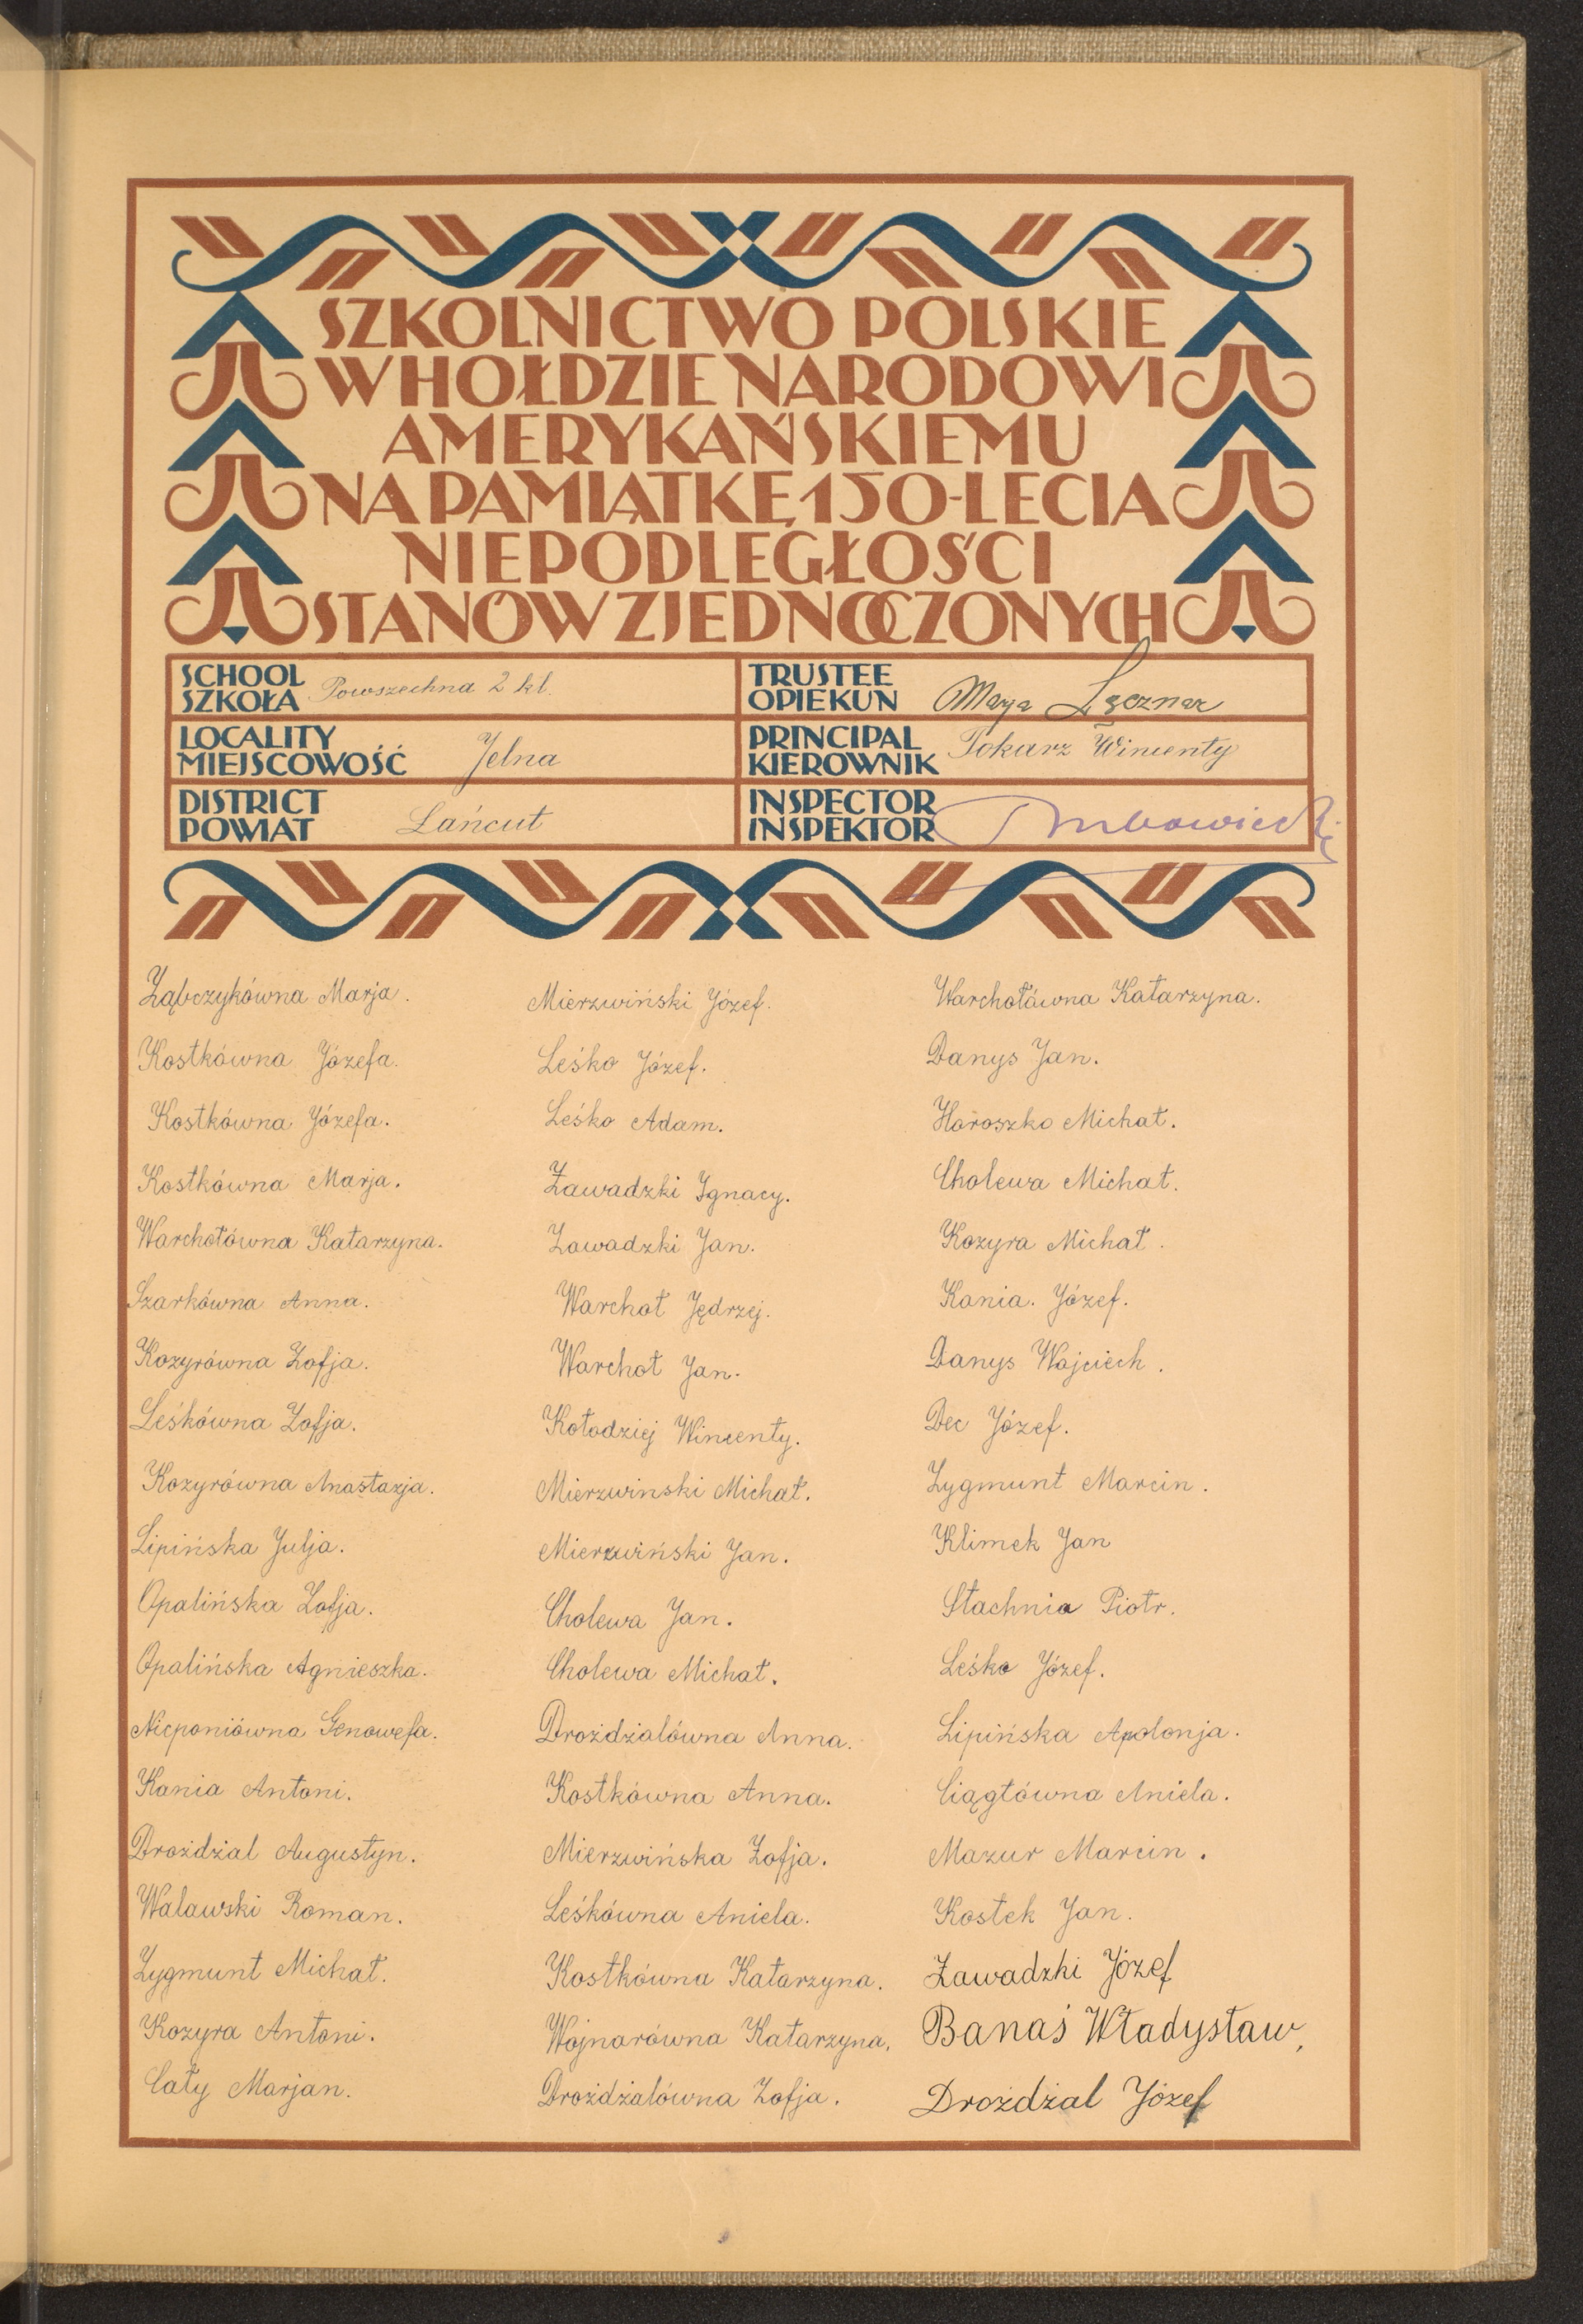 SZKOLNICTWO POLSKIE
W HOŁDZIE NARODOWI
AMERYKAŃSKIEMU
NA PAMIĄTKĘ 150-LECIA
NIEPODLEGŁOŚCI
STANÓW ZJEDNOCZONYCH
SCHOOL
SZKOŁA Powszechna 2 kl.
TRUSTEE
OPIEKUN Marya Łącznar
LOCALITY
MIEJSCOWOŚĆ Jelna
PRINCIPAL
KIEROWNIK Tokarz Wincenty
DISTRICT
POWIAT Łańcut
INSPECTOR
INSPEKTOR
Ząbczykówna Marja.
Kostkówna Józefa.
Kostkówna Józefa.
Kostkówna Marja.
Warchołówna Katarzyna.
Szarkówna Anna.
Kozyrówna Zofja.
Leśkówna Zofja.
Kozyrówna Anastazja.
Lipińska Julja.
Opalińska Zofja.
Opalińska Agnieszka.
Nicponiówna Genowefa.
Kania Antoni.
Drożdżal Augustyn.
Walawski Roman.
Zygmunt Michał.
Kozyra Antoni.
Cały Marjan.
Mierzwiński Józef.
Leśko Józef.
Leśko Adam.
Zawadzki Ignacy.
Zawadzki Jan.
Warchoł Jędrzej.
Warchoł Jan.
Kołodziej Wincenty.
Mierzwinski Michał.
Mierzwiński Jan.
Cholewa Jan.
Cholewa Michał.
Drożdżalówna Anna.
Kostkówna Anna.
Mierzwińska Zofja.
Leśkówna Aniela.
Kostkówna Katarzyna.
Wojnarówna Katarzyna.
Drożdżalówna Zofja.
Warchołówna Katarzyna.
Danys Jan.
Horoszko Michał.
Cholewa Michał.
Kozyra Michał.
Kania. Józef.
Danys Wojciech.
Dec Józef.
Zygmunt Marcin.
Klimek Jan
Stachnia Piotr.
Leśko Józef.
Lipińska Apolonja.
Ciągłówna Aniela.
Mazur Marcin.
Kostek Jan.
Zawadzki Józef
Banaś Władysław,
Drożdżal Józef